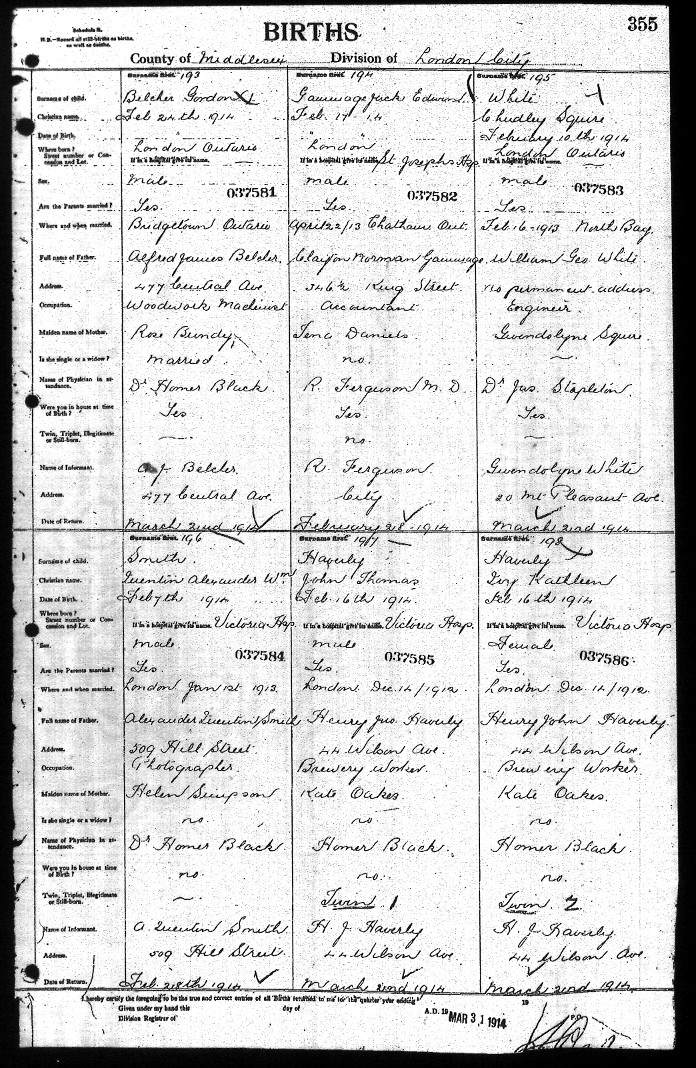 Schedule B.
N.B.—Record all still-births as births, as well as deaths.
BIRTHS
355
County of Middlesex Division of London City
Surname first. 193 Surname first. 194 Surname first. 195
Surname of child. Belcher Gordon Gammage Jack Edward White
Christian name. Feb 24th 1914 Feb. 17 " 14 Chudley Squire
Date of Birth. February 10th 1914
Where born? London Ontario London London Ontario
Street number or Concession and Lot. If in a hospital give its name. If in a hospital give its name. St Josephs Hsp. If in a hospital give its name.
Sex. Male male male
037581 037582 037583
Are the Parents married? Yes. Yes. Yes.
Where and when married. Bridgetown Ontario April 22/13 Chatham Ont. Feb 16-1913 North Bay.
Full name of Father. Alfred James Belcher. Clayton Norman Gammage. William Geo White
Address. 477 Central Ave 346½ King Street. no permanent address
Occupation. Woodwork Machinist Accountant Engineer.
Maiden name of Mother. Rose Bundy Tena Daniels Gwendolyne Squire
Is she single or a widow? married. no. —
Name of Physician in attendance. Dr Homer Black R. Ferguson M. D. Dr Jas. Stapleton
Were you in house at time of Birth? Yes Yes. Yes.
Twin, Triplet, Illegitimate or Still-born. — no. —
Name of Informant. A. J. Belcher. R. Ferguson Gwendolyne White
Address. 477 Central Ave. City 20 Mt Pleasant Ave.
Date of Return. March 2nd 1914 February 28-1914 March 2nd 1914
Surname first. 196 Surname first. 197 Surname first. 198
Surname of child. Smith Haverly Haverly
Christian name. Quentin Alexander Wm John Thomas Ivy Kathleen
Date of Birth. Feb 7th 1914 Feb. 16th 1914 Feb 16th 1914
Where born?
Street number or Concession and Lot. If in a hospital give its name. Victoria Hsp. If in a hospital give its name. Victoria Hosp. If in a hospital give its name. Victoria Hosp
Sex. Male. male Female
037584 037585 037586
Are the Parents married? Yes. Yes. Yes.
Where and when married. London Jan 1st 1912. London Dec. 14/1912. London Dec. 14/1912.
Full name of Father. Alexander Quentin Smith Henry Jno Haverly Henry John Haverly
Address. 509 Hill Street. 44 Wilson Ave. 44 Wilson Ave.
Occupation. Photographer Brewery Worker. Brewery Worker.
Maiden name of Mother. Helen Simpson Kate Oakes. Kate Oakes.
Is she single or a widow? no. no. no.
Name of Physician in attendance. Dr Homer Black Homer Black. Homer Black.
Were you in house at time of Birth? no. no. no.
Twin, Triplet, Illegitimate or Still-born. — Twin 1 Twin 2
Name of Informant. A. Quentin Smith H. J. Haverly H. J. Haverly.
Address 509 Hill Street. 44 Wilson Ave 44 Wilson Ave.
Date of Return. Feb. 28th 1914 March 2nd 1914 March 2nd 1914.
I hereby certify the foregoing to be the true and correct entries of all Births returned to me for the quarter year ending 19
Given under my hand this day of A.D. 19 MAR 31 1914
Division Registrar of